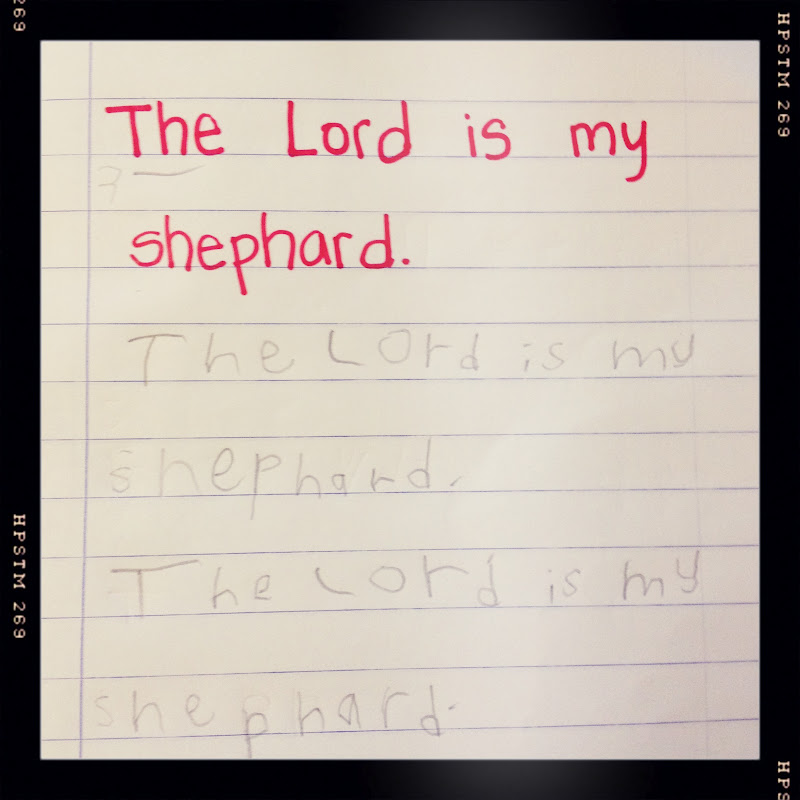 269
HPSTM 269
The Lord is my
shephard.
The Lord is my
shephard.
HPSTM 269
The Lord is my
shephard.
HPS